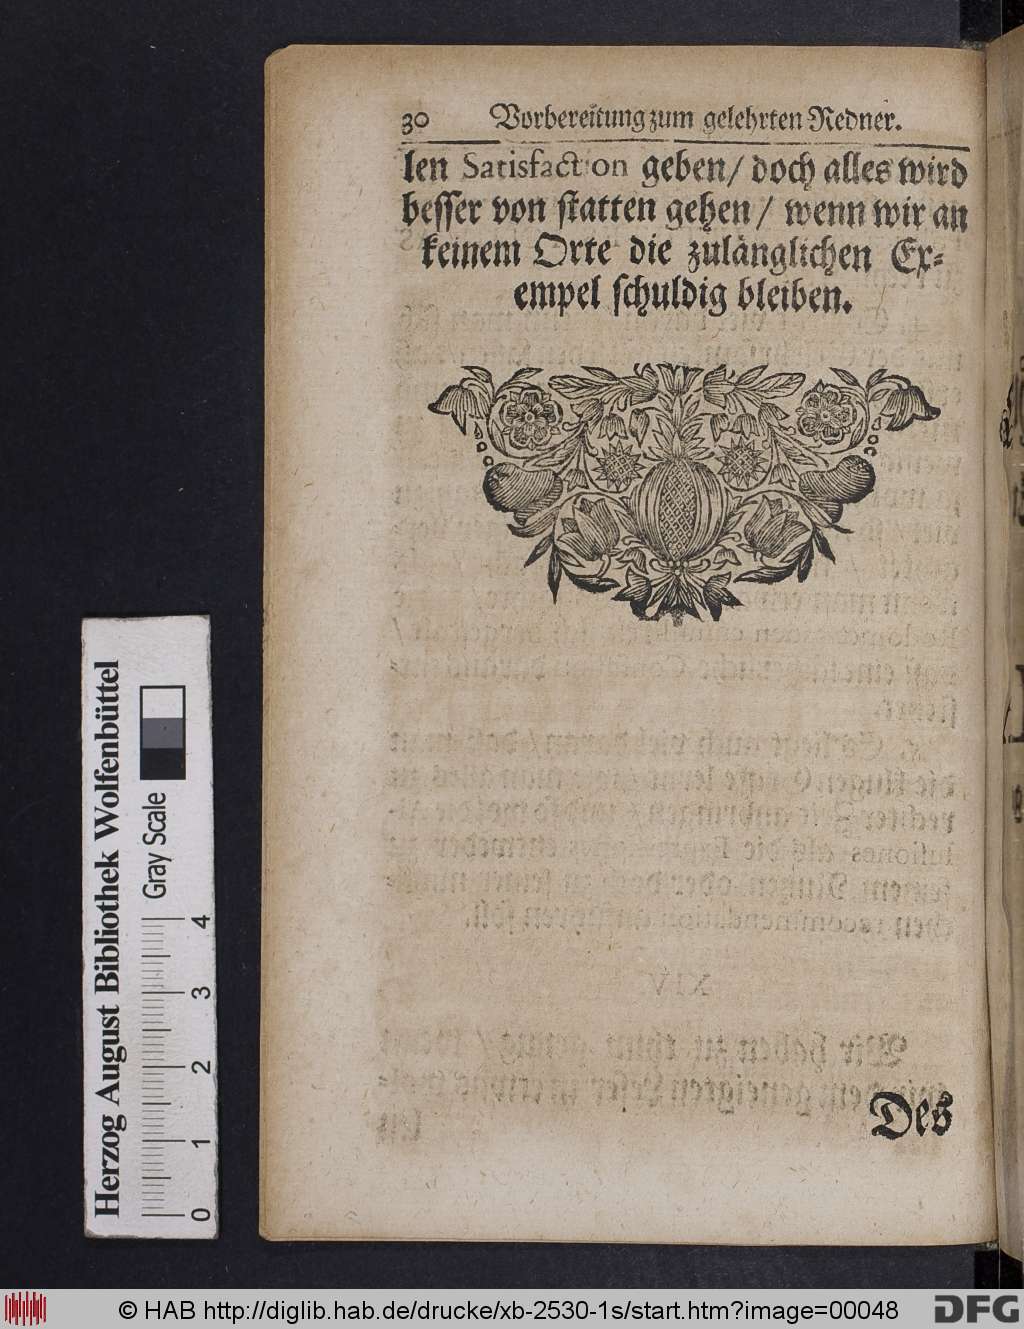 30 Vorbereitung zum gelehrten Redner.
len Satisfaction geben / doch alles wird
besser von statten gehen / wenn wir an
keinem Orte die zulänglichen Ex-
empel schuldig bleiben.
Des
Herzog August Bibliothek Wolfenbüttel
Gray Scale
0 1 2 3 4
© HAB http://diglib.hab.de/drucke/xb-2530-1s/start.htm?image=00048
DFG